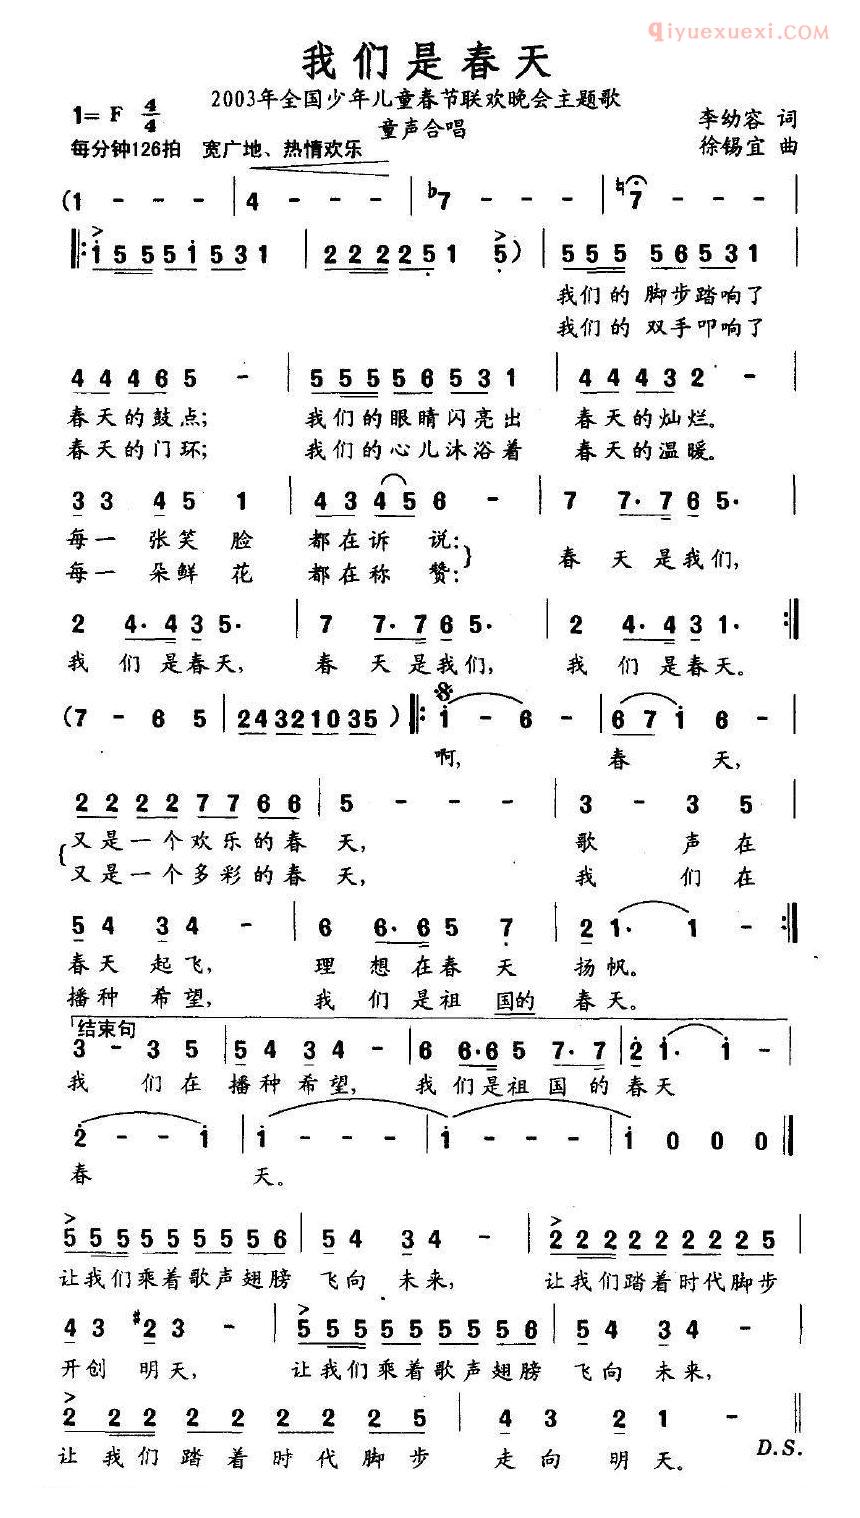 qiyuexuexi.COM
我们是春天
2003年全国少年儿童春节联欢晚会主题歌
童声合唱
1= F 4/4
每分钟126拍 宽广地、热情欢乐
李幼容 词
徐锡宜 曲
(1 - - - | 4 - - - | ♭7 - - - | ♮7 - - - |
‖: i 5 5 5 i 5 3 1 | 2 2 2 2 5 1 5 ) | 5 5 5 5 6 5 3 1 |
我们的 脚步踏响了
我们的 双手叩响了
4 4 4 6 5 - | 5 5 5 5 6 5 3 1 | 4 4 4 3 2 - |
春天的鼓点; 我们的眼睛闪亮出 春天的灿烂。
春天的门环; 我们的心儿沐浴着 春天的温暖。
3 3 4 5 1 | 4 3 4 5 6 - | 7 7· 7 6 5· |
每一 张笑 脸 都在诉 说: 春 天 是我们,
每一 朵鲜 花 都在称 赞:
2 4· 4 3 5· | 7 7· 7 6 5· | 2 4· 4 3 1· :‖
我 们 是春天, 春 天 是我们, 我 们 是春天。
(7 - 6 5 | 2 4 3 2 1 0 3 5 ) ‖: i - 6 - | 6 7 i 6 - |
啊, 春 天,
2 2 2 2 7 7 6 6 | 5 - - - | 3 - 3 5 |
又是一个欢乐的春 天, 歌 声在
又是一个多彩的春 天, 我 们在
5 4 3 4 - | 6 6· 6 5 7 | 2 1· 1 - :‖
春天 起飞, 理 想在春 天 扬帆。
播种 希望, 我 们是祖 国的 春天。
结束句
3 - 3 5 | 5 4 3 4 - | 6 6·6 5 7· 7 | 2 i· i - |
我 们在 播种希望, 我们是祖 国 的春天
2 - - i | i - - - | i - - - | i 0 0 0 ‖
春 天。
5 5 5 5 5 5 5 5 6 | 5 4 3 4 - | 2 2 2 2 2 2 2 2 5 |
让我们乘着歌声翅膀 飞向 未来, 让我们踏着时代脚步
4 3 #2 3 - | 5 5 5 5 5 5 5 5 6 | 5 4 3 4 - |
开创 明天, 让我们乘着歌声翅膀 飞向 未来,
2 2 2 2 2 2 2 2 5 | 4 3 2 1 - ‖
让我们踏着时代脚步 走向 明天。
D.S.